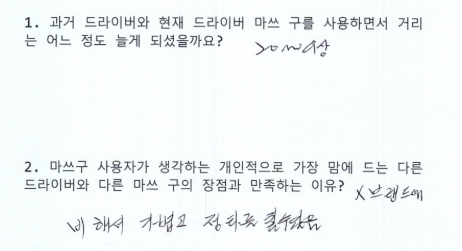 1. 과거 드라이버와 현재 드라이버 마쓰 구를 사용하면서 거리
는 어느 정도 늘게 되셨을까요?
20m이상
2. 마쓰구 사용자가 생각하는 개인적으로 가장 맘에 드는 다른
드라이버와 다른 마쓰 구의 장점과 만족하는 이유? X브랜드에
비해서 가볍고 정타로 칠수있음